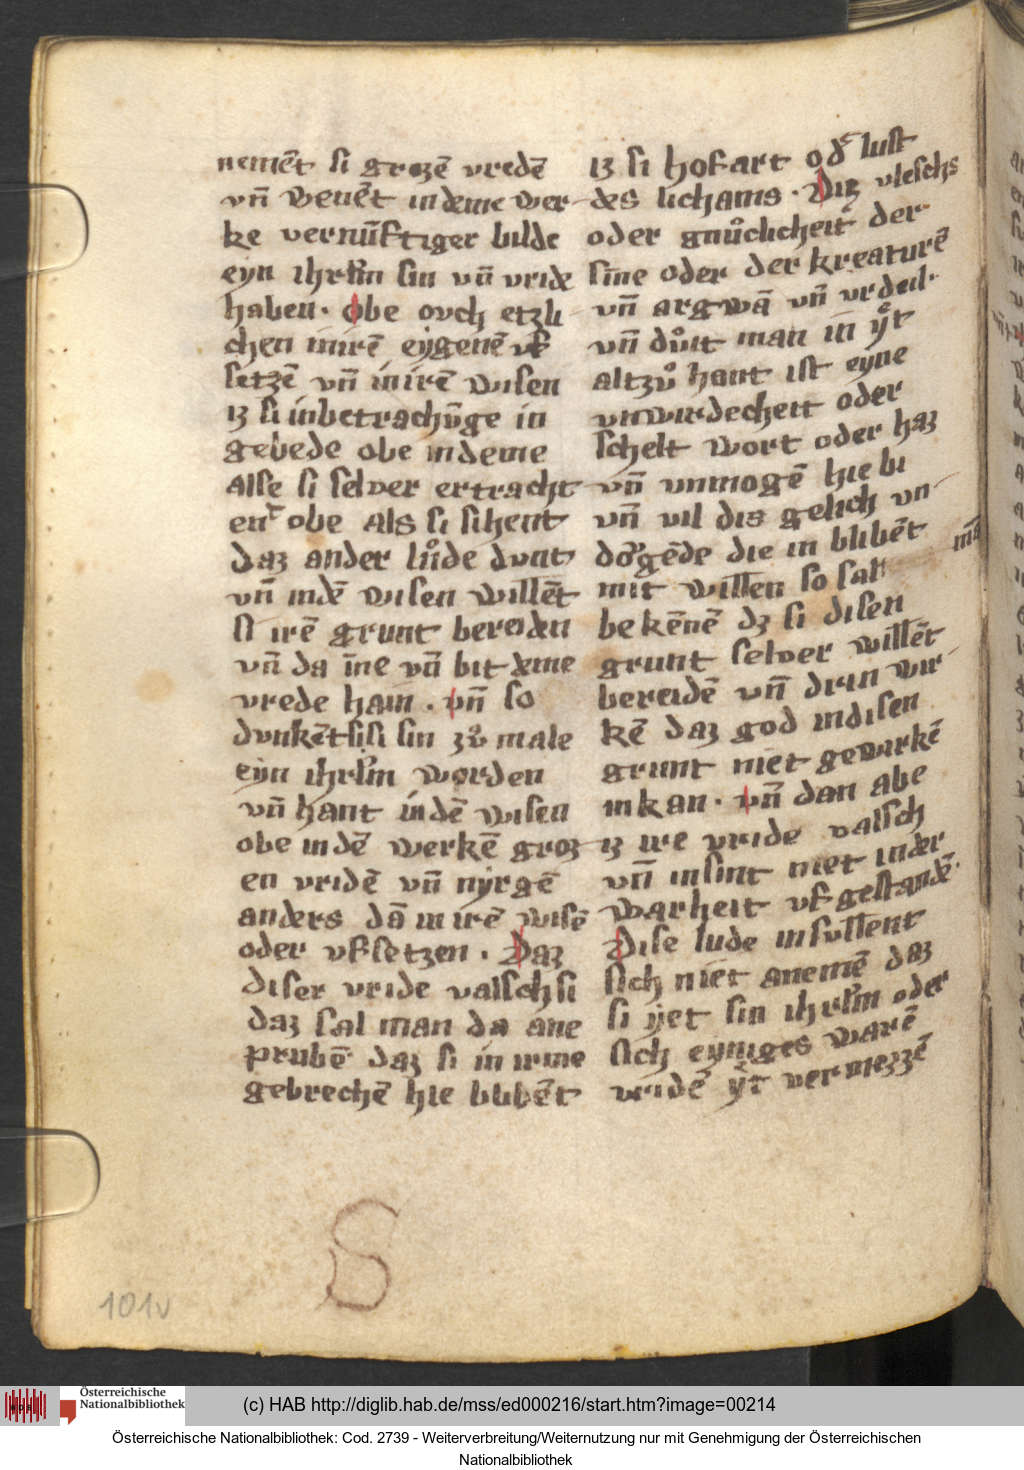 nemēt si grozē vredē
vn̄ wenēt in deme wer
ke vernūftiger bilde
eyn ihrl'm sin vn̄ vride
haben · obe ouch etzli
chen in irē eygenē vf
setzē vn̄ in irē wisen
iz si in betrachūge in
gebede obe in deme
Alse si selver ertracht
en' obe Als si sihent
daz ander lůde dvnt
vn̄ in dē wisen willēt
si irē grunt bereiden
vn̄ da īne vn̄ bit deme
vrede hain · vn̄ so
dvnkēt si si sin zů male
eyn ihrl'm worden
vn̄ hant in dē wisen
obe in dē werkē groz
en vridē vn̄ nyrgē
anders dā in irē wisē
oder vfsetzen · Daz
diser vride valsch si
daz sal man da ane
prubē daz si in irme
gebrechē hie blibēt
iz si hofart od' lust
des lichams · Diz vleischs
oder gnůclicheit der
sīne oder der kreaturē
vn̄ argwā vn̄ vrdeil ·
vn̄ důit man in yt
altzů hant ist eyne
vnwirdecheit oder
schelt wort oder haz
vn̄ vnmogē hie bi
vn̄ vil dis gelich vn
dogēde die in blibēt
mit willen so sal mā
bekēnē dz si disen
grunt selver willēt
bereidē vn̄ dirin wir
kē daz god in disen
grunt niet gewirkē
in kan · vn̄ dan abe
iz ire vride valsch
vn̄ in sint niet in der
warheit vf gestandē ·
Dise lude in sullent
sich niet anemē daz
si yet sin ihrl'm oder
sich eyniges warē
vridē yt vermezzē
S
101v
Österreichische
Nationalbibliothek
(c) HAB http://diglib.hab.de/mss/ed000216/start.htm?image=00214
Österreichische Nationalbibliothek: Cod. 2739 - Weiterverbreitung/Weiternutzung nur mit Genehmigung der Österreichischen
Nationalbibliothek